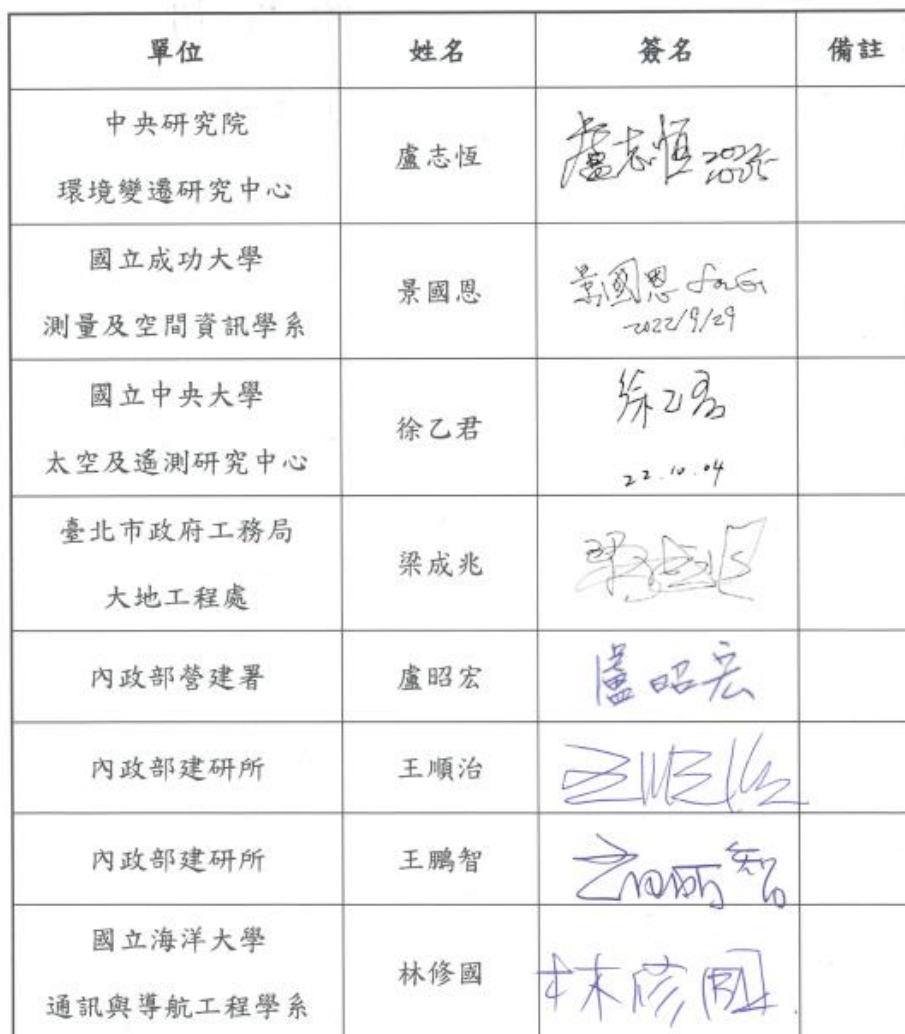 單位 姓名 簽名 備註
中央研究院
環境變遷研究中心
盧志恆 盧志恒
國立成功大學
測量及空間資訊學系
景國恩 景國恩
2022/9/29
國立中央大學
太空及遙測研究中心
徐乙君 徐乙君
22.10.04
臺北市政府工務局
大地工程處
梁成兆
內政部營建署 盧昭宏 盧昭宏
內政部建研所 王順治
內政部建研所 王鵬智
國立海洋大學
通訊與導航工程學系
林修國 林修國